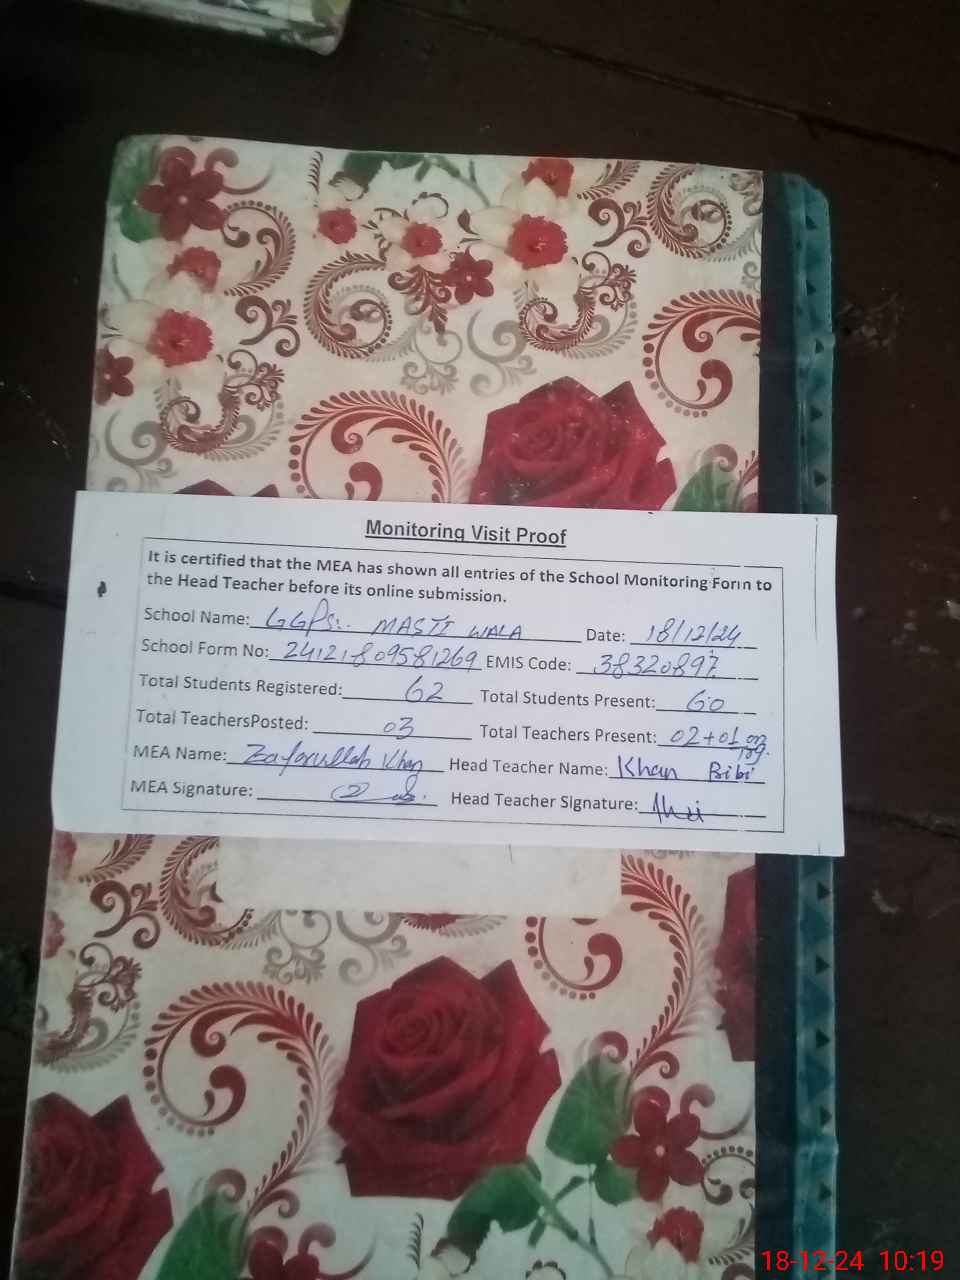 Monitoring Visit Proof
It is certified that the MEA has shown all entries of the School Monitoring Form to
the Head Teacher before its online submission.
School Name: GGPS. MASTI WALA Date: 18/12/24
School Form No: 24121809581269 EMIS Code: 38320897
Total Students Registered: 62 Total Students Present: 60
Total TeachersPosted: 03 Total Teachers Present: 02+01 on
MEA Name: Zafarullah Khan Head Teacher Name: Khan Bibi
MEA Signature: Head Teacher Signature:
18-12-24 10:19